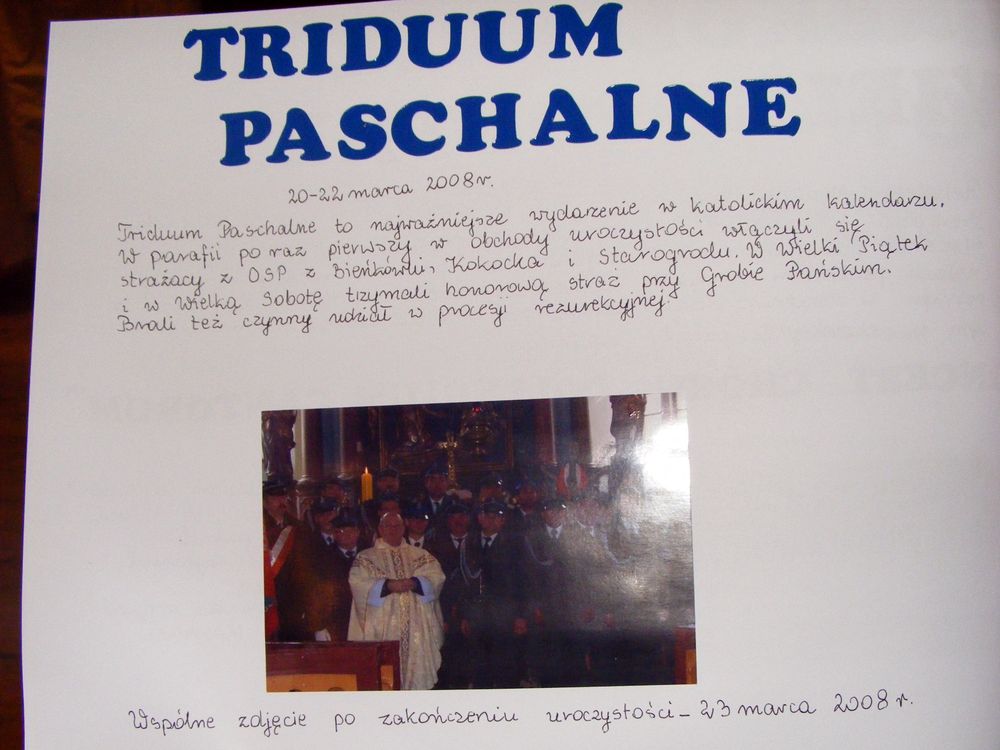 TRIDUUM
PASCHALNE
20-22 marca 2008r.
Triduum Paschalne to najważniejsze wydarzenie w katolickim kalendarzu.
W parafii po raz pierwszy w obchody uroczystości włączyli się
strażacy z OSP z Bieńkówki, Kokocka i Starogrodu. W Wielki Piątek
i w Wielką Sobotę trzymali honorową straż przy Grobie Pańskim.
Brali też czynny udział w procesji rezurekcyjnej.
Wspólne zdjęcie po zakończeniu uroczystości - 23 marca 2008 r.